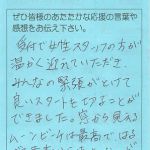 ぜひ皆様のあたたかな応援の言葉や
感想をお伝え下さい。
受付で女性スタッフの方が
温かく迎れていただき、
みんなの緊張がとけて
良いスタートを切ることが
できました。窓から見える
ムーンビーチは最高で、はる